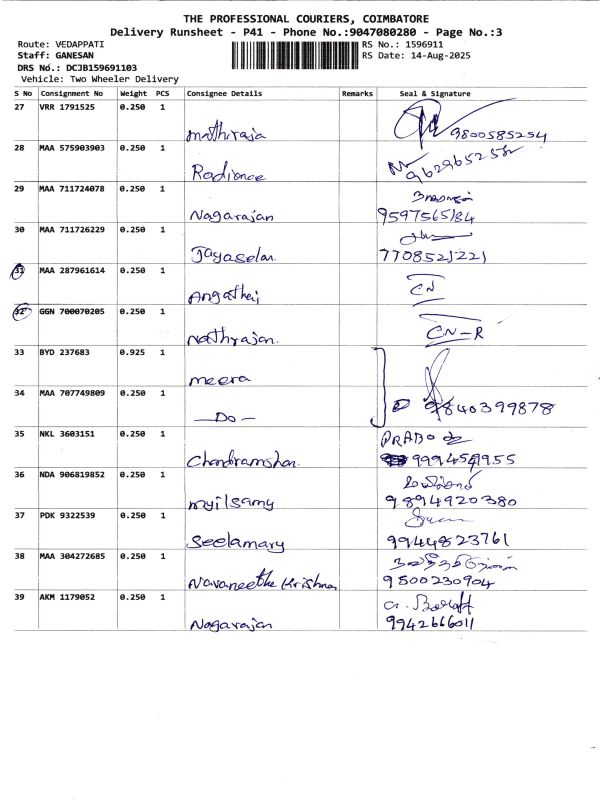 THE PROFESSIONAL COURIERS, COIMBATORE
Delivery Runsheet - P41 - Phone No.:9047080280 - Page No.:3
Route: VEDAPPATI
RS No.: 1596911
Staff: GANESAN
RS Date: 14-Aug-2025
DRS No.: DCJB159691103
Vehicle: Two Wheeler Delivery
S No Consignment No Weight PCS Consignee Details Remarks Seal & Signature
27 VRR 1791525 0.250 1
mathiraja 9800585254
28 MAA 575903903 0.250 1
Radiance
29 MAA 711724078 0.250 1
Nagarajan 9597565184
30 MAA 711726229 0.250 1
Jayaselan 7708521221
31 MAA 287961614 0.250 1
Angathai CN
32 GGN 700070205 0.250 1
Nathrajan. CN-R
33 BYD 237683 0.925 1
meera
34 MAA 707749809 0.250 1
-Do- 9840399878
35 NKL 3603151 0.250 1 PRABO
Chandramshan.
36 NDA 906819852 0.250 1
myilsamy 9894920380
37 PDK 9322539 0.250 1
Seelamary 9944823761
38 MAA 304272685 0.250 1
Navaneetha Krishnan 9500230904
39 AKM 1179052 0.250 1
Nagarajan 9942666011